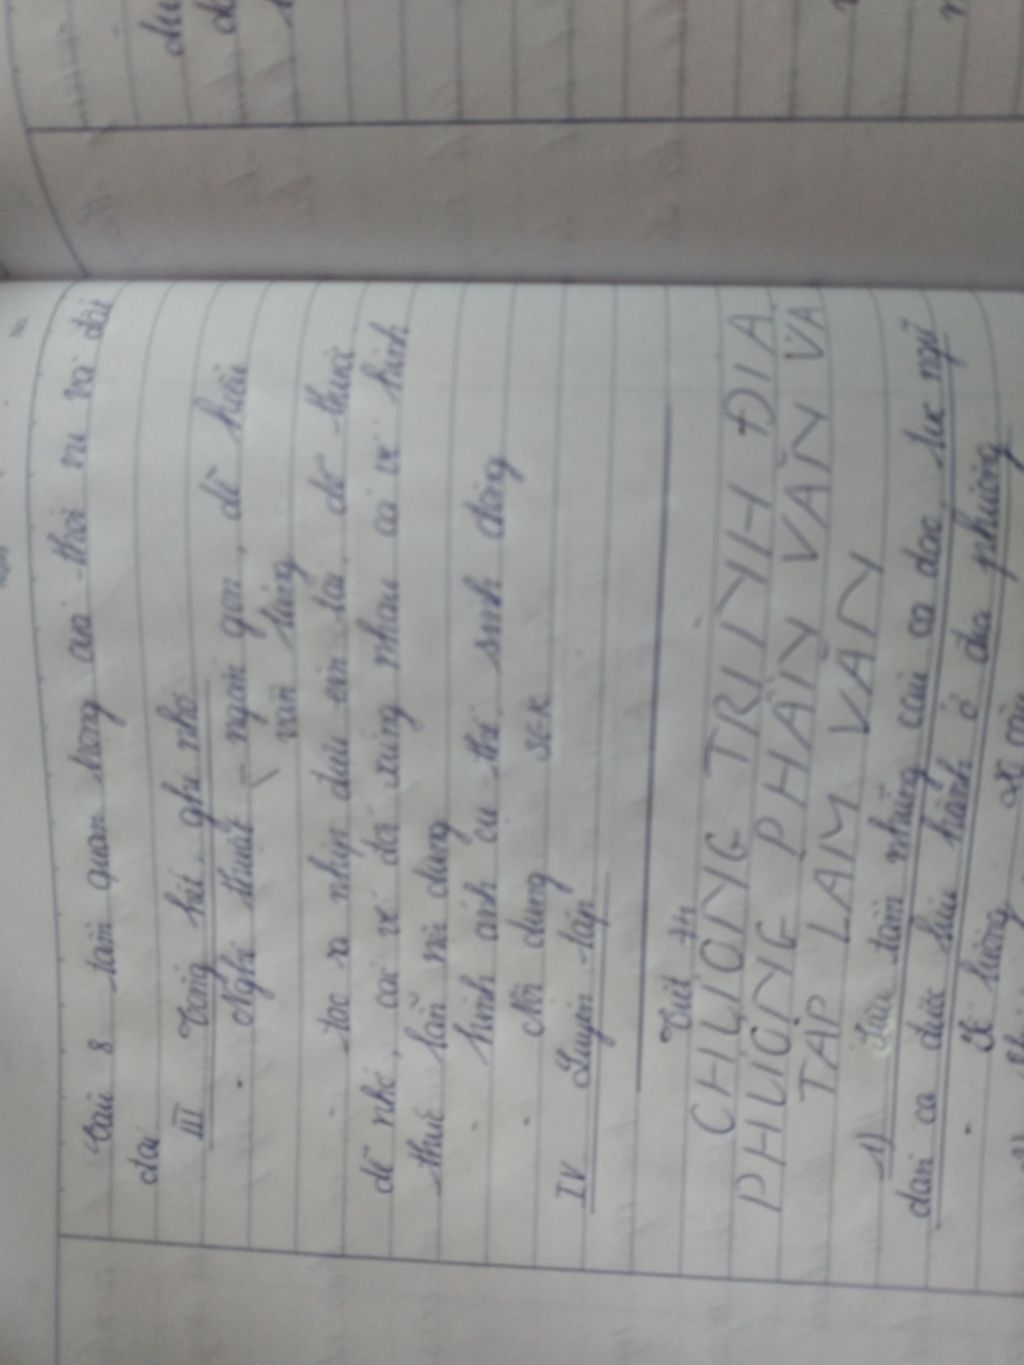 Câu 8: tầm quan trọng của thời vụ và đất
đai
III Tổng kết, ghi nhớ
Nghệ thuật - ngắn gọn, dễ hiểu
vần lưng
tạo ra nhịp điệu, dễ thuộc
dễ nhớ, các vế đối xứng nhau cả về hình
thức lẫn nội dung
hình ảnh cụ thể sinh động
Nội dung SGK
IV Luyện tập
Tiết 74
CHƯƠNG TRÌNH ĐỊA
PHƯƠNG PHẦN VĂN VÀ
TẬP LÀM VĂN
1) Sưu tầm những câu ca dao, tục ngữ
dân ca được lưu hành ở địa phương